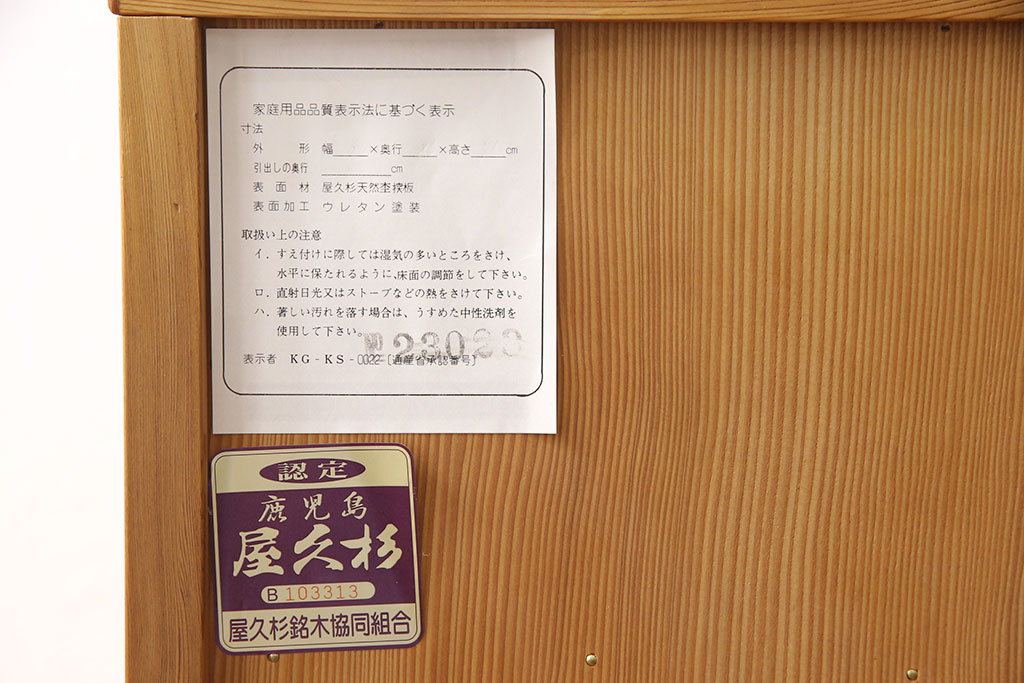 家庭用品品質表示法に基づく表示
寸法
外形 幅____×奥行____×高さ____cm
引出しの奥行 ________cm
表面材 屋久杉天然杢突板
表面加工 ウレタン塗装
取扱い上の注意
イ．すえ付けに際しては湿気の多いところをさけ、
水平に保たれるように、床面の調節をして下さい。
ロ．直射日光又はストーブなどの熱をさけて下さい。
ハ．著しい汚れを落す場合は、うすめた中性洗剤を
使用して下さい。
表示者 KG-KS-0022〔通産省承認番号〕
認定
鹿児島
屋久杉
B 103313
屋久杉銘木協同組合